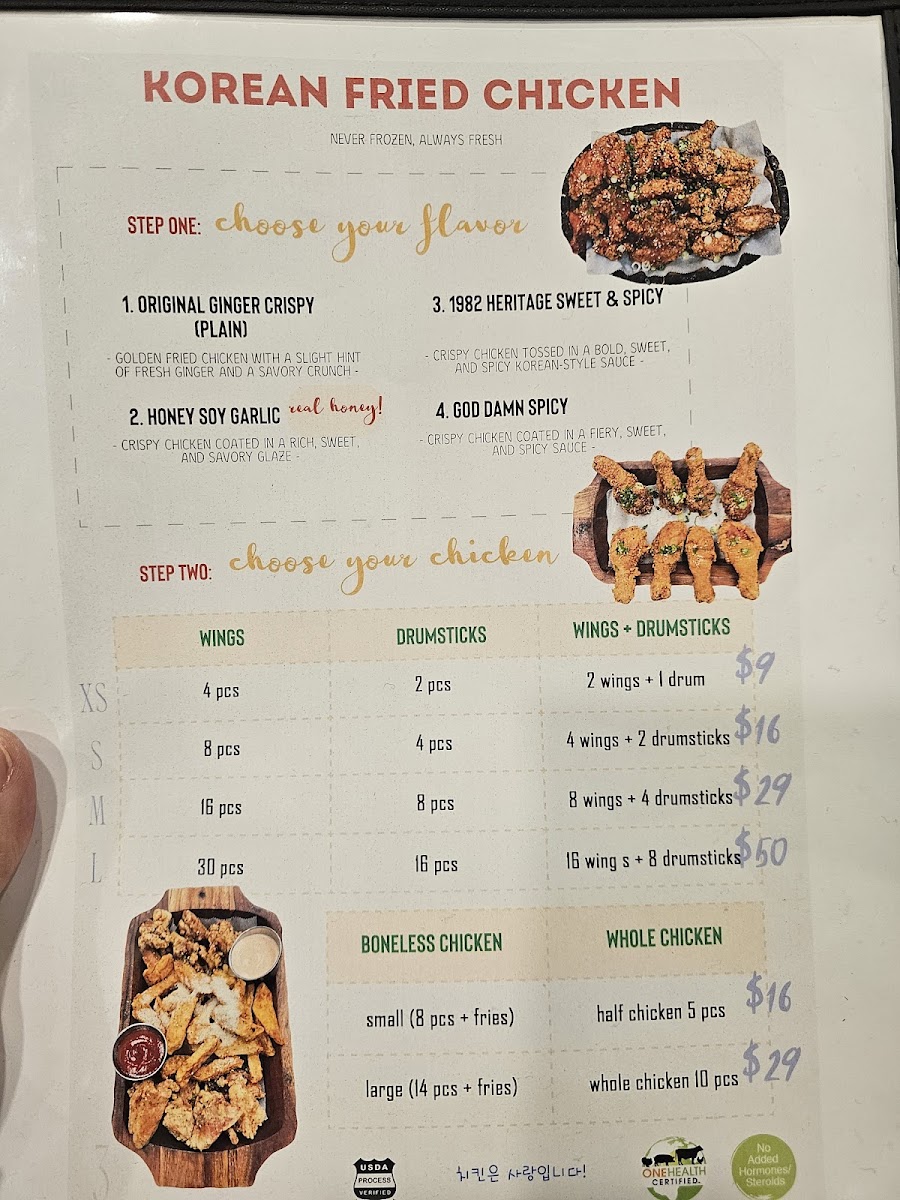 KOREAN FRIED CHICKEN
NEVER FROZEN, ALWAYS FRESH
STEP ONE: choose your flavor
1. ORIGINAL GINGER CRISPY
(PLAIN)
- GOLDEN FRIED CHICKEN WITH A SLIGHT HINT
OF FRESH GINGER AND A SAVORY CRUNCH -
2. HONEY SOY GARLIC real honey!
- CRISPY CHICKEN COATED IN A RICH, SWEET,
AND SAVORY GLAZE -
3. 1982 HERITAGE SWEET & SPICY
- CRISPY CHICKEN TOSSED IN A BOLD, SWEET,
AND SPICY KOREAN-STYLE SAUCE -
4. GOD DAMN SPICY
- CRISPY CHICKEN COATED IN A FIERY, SWEET,
AND SPICY SAUCE -
STEP TWO: choose your chicken
WINGS DRUMSTICKS WINGS + DRUMSTICKS
XS 4 pcs 2 pcs 2 wings + 1 drum $9
S 8 pcs 4 pcs 4 wings + 2 drumsticks $16
M 16 pcs 8 pcs 8 wings + 4 drumsticks $29
L 30 pcs 16 pcs 16 wing s + 8 drumsticks $50
BONELESS CHICKEN WHOLE CHICKEN
small (8 pcs + fries) half chicken 5 pcs $16
large (14 pcs + fries) whole chicken 10 pcs $29
USDA
PROCESS
VERIFIED
치킨은 사랑입니다!
ONEHEALTH
CERTIFIED.
No
Added
Hormones/
Steroids